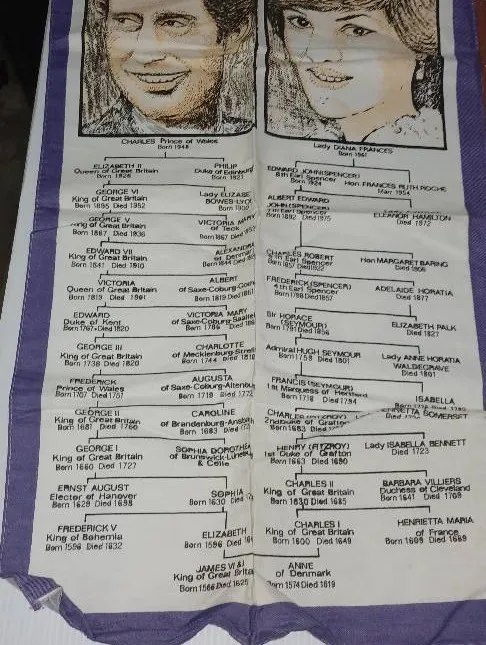 CHARLES Prince of Wales
Born 1948
Lady DIANA FRANCES
Born 1961
ELIZABETH II
Queen of Great Britain
Born 1926
PHILIP
Duke of Edinburgh
Born 1921
EDWARD JOHN (SPENCER)
8th Earl Spencer
Born 1924
Hon. FRANCES RUTH ROCHE
Marr 1954
GEORGE VI
King of Great Britain
Born 1895 Died 1952
Lady ELIZABE
BOWES-LYO
Born 1900
ALBERT EDWARD
JOHN (SPENCER)
7th Earl Spencer
Born 1892 Died 1975
ELEANOR HAMILTON
Died 1972
GEORGE V
King of Great Britain
Born 1867 Died 1936
VICTORIA MARY
of Teck
Born 1867 Died 1953
EDWARD VII
King of Great Britain
Born 1841 Died 1910
ALEXANDRA
of Denmark
Born 1844 Died
CHARLES ROBERT
6th Earl Spencer
Born 1857 Died 1922
Hon MARGARET BARING
Died 1906
VICTORIA
Queen of Great Britain
Born 1819 Died 1901
ALBERT
of Saxe-Coburg-Goth
Born 1819 Died 1861
FREDERICK (SPENCER)
4th Earl Spencer
Born 1798 Died 1857
ADELAIDE HORATIA
Died 1877
EDWARD
Duke of Kent
Born 1767 Died 1820
VICTORIA MARY
of Saxe-Coburg-Saalfel
Born 1786 Died 186
Sir HORACE
(SEYMOUR)
Born 1791 Died 1856
ELIZABETH PALK
Died 1827
GEORGE III
King of Great Britain
Born 1738 Died 1820
CHARLOTTE
of Mecklenburg-Strelit
Born 1744 Died 1818
Admiral HUGH SEYMOUR
Born 1759 Died 1801
Lady ANNE HORATIA
WALDEGRAVE
Died 1801
FREDERICK
Prince of Wales
Born 1707 Died 1751
AUGUSTA
of Saxe-Coburg-Altenbu
Born 1719 Died 1772
FRANCIS (SEYMOUR)
1st Marquess of Hertford
Born 1718 Died 1794
ISABELLA
GEORGE II
King of Great Britain
Born 1683 Died 1760
CAROLINE
of Brandenburg-Ansbach
Born 1683 Died
CHARLES (FITZROY)
2nd Duke of Grafton
Born 1683
HENRIETTA SOMERSET
GEORGE I
King of Great Britain
Born 1660 Died 1727
SOPHIA DOROTHEA
of Brunswick-Luneburg
& Celle
HENRY (FITZROY)
1st Duke of Grafton
Born 1663 Died 1690
Lady ISABELLA BENNETT
Died 1723
ERNST AUGUST
Elector of Hanover
Born 1629 Died 1698
SOPHIA
Born 1630 Died
CHARLES II
King of Great Britain
Born 1630 Died 1685
BARBARA VILLIERS
Duchess of Cleveland
Born 1641 Died 1709
FREDERICK V
King of Bohemia
Born 1596 Died 1632
ELIZABETH
Born 1596 Died 166
CHARLES I
King of Great Britain
Born 1600 Died 1649
HENRIETTA MARIA
of France
Born 1609 Died 1669
JAMES VI & I
King of Great Britain
Born 1566 Died 1625
ANNE
of Denmark
Born 1574 Died 1619